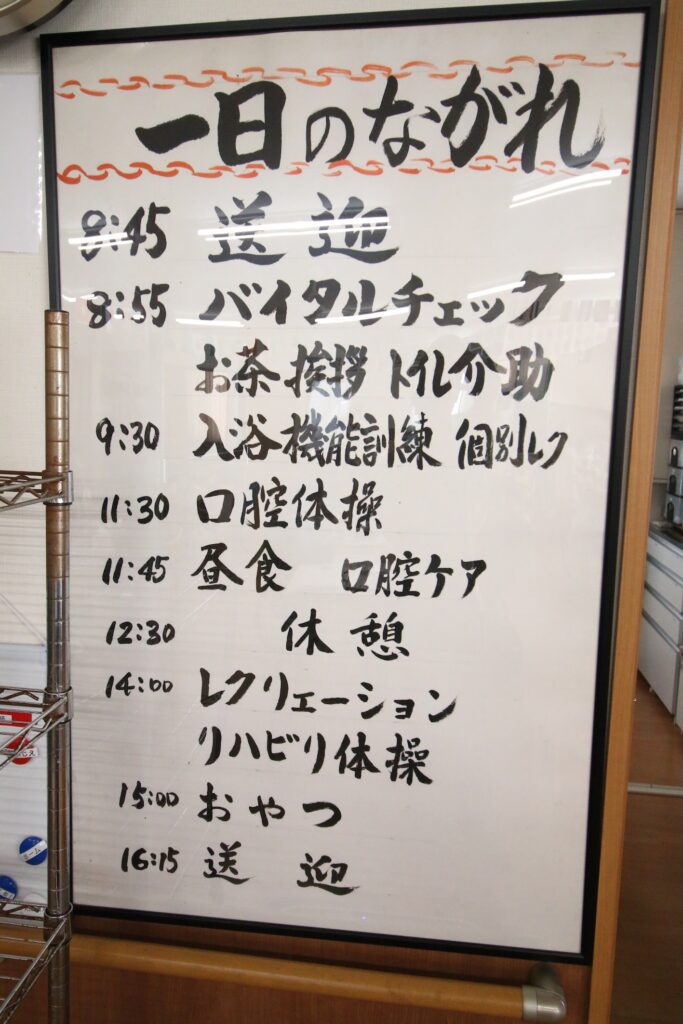 一日のながれ
8:45 送迎
8:55 バイタルチェック
お茶 挨拶 トイレ介助
9:30 入浴 機能訓練 個別レク
11:30 口腔体操
11:45 昼食 口腔ケア
12:30 休憩
14:00 レクリェーション
リハビリ体操
15:00 おやつ
16:15 送迎